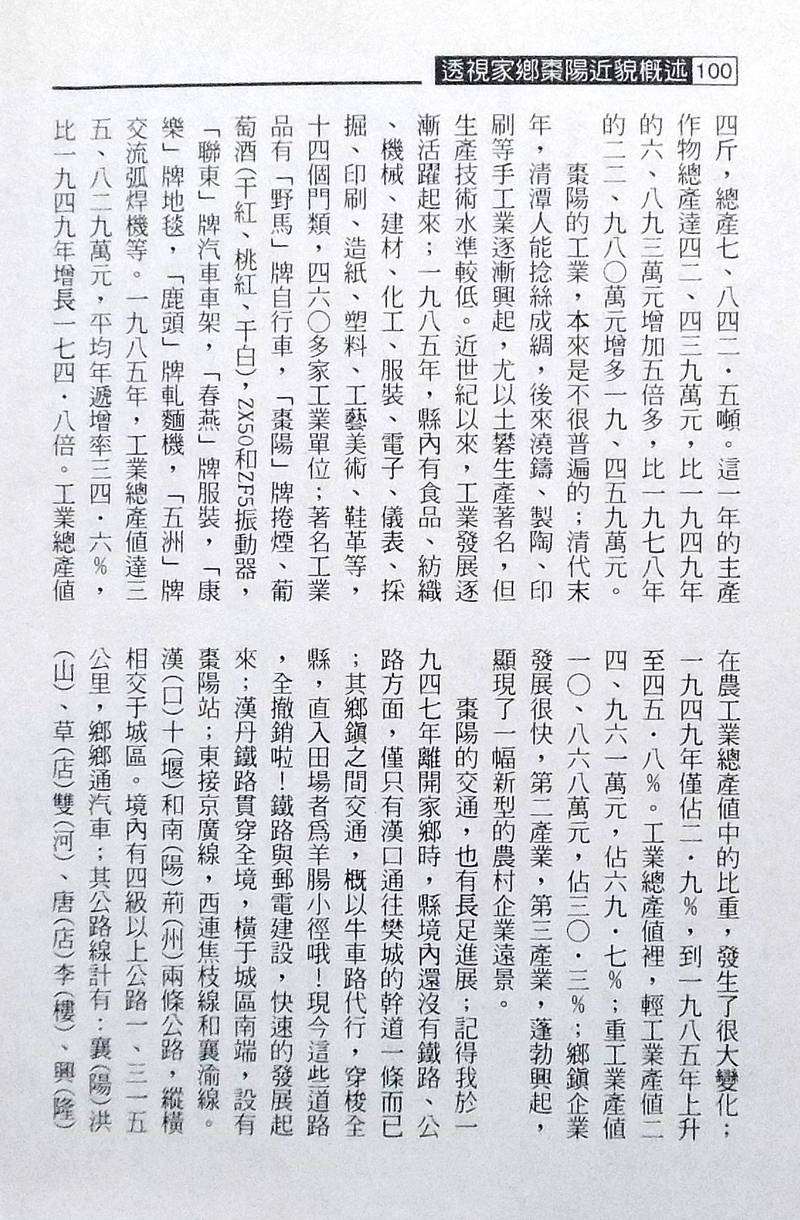 透視家鄉棗陽近貌概述 100
四斤，總產七、八四二．五噸。這一年的主產
作物總產達四二、四三九萬元，比一九四九年
的六、八九三萬元增加五倍多，比一九七八年
的二二、九八〇萬元增多一九、四五九萬元。
棗陽的工業，本來是不很普遍的；清代末
年，清潭人能捻絲成綢，後來澆鑄、製陶、印
刷等手工業逐漸興起，尤以土礬生產著名，但
生產技術水準較低。近世紀以來，工業發展逐
漸活躍起來；一九八五年，縣內有食品、紡織
、機械、建材、化工、服裝、電子、儀表、採
掘、印刷、造紙、塑料、工藝美術、鞋革等，
十四個門類，四六〇多家工業單位；著名工業
品有「野馬」牌自行車，「棗陽」牌捲煙、葡
萄酒(干紅、桃紅、干白)，ZX50和ZF5振動器，
「聯東」牌汽車車架，「春燕」牌服裝，「康
樂」牌地毯，「鹿頭」牌軋麵機，「五洲」牌
交流弧焊機等。一九八五年，工業總產値達三
五、八二九萬元，平均年遞增率三四．六%，
比一九四九年增長一七四．八倍。工業總產値
在農工業總產値中的比重，發生了很大變化；
一九四九年僅佔二．九%，到一九八五年上升
至四五．八%。工業總產値裡，輕工業產値二
四、九六一萬元，佔六九．七%；重工業產値
一〇、八六八萬元，佔三〇．三%；鄉鎮企業
發展很快，第二產業，第三產業，蓬勃興起，
顯現了一幅新型的農村企業遠景。
棗陽的交通，也有長足進展；記得我於一
九四七年離開家鄉時，縣境內還沒有鐵路、公
路方面，僅只有漢口通往樊城的幹道一條而已
；其鄉鎮之間交通，概以牛車路代行，穿梭全
縣，直入田場者爲羊腸小徑哦！現今這些道路
，全撤銷啦！鐵路與郵電建設，快速的發展起
來；漢丹鐵路貫穿全境，橫于城區南端，設有
棗陽站；東接京廣線，西連焦枝線和襄渝線。
漢(口)十(堰)和南(陽)荊(州)兩條公路，縱橫
相交于城區。境內有四級以上公路一、三一五
公里，鄉鄉通汽車；其公路線計有：襄(陽)洪
(山)、草(店)雙(河)、唐(店)李(樓)、興(隆)